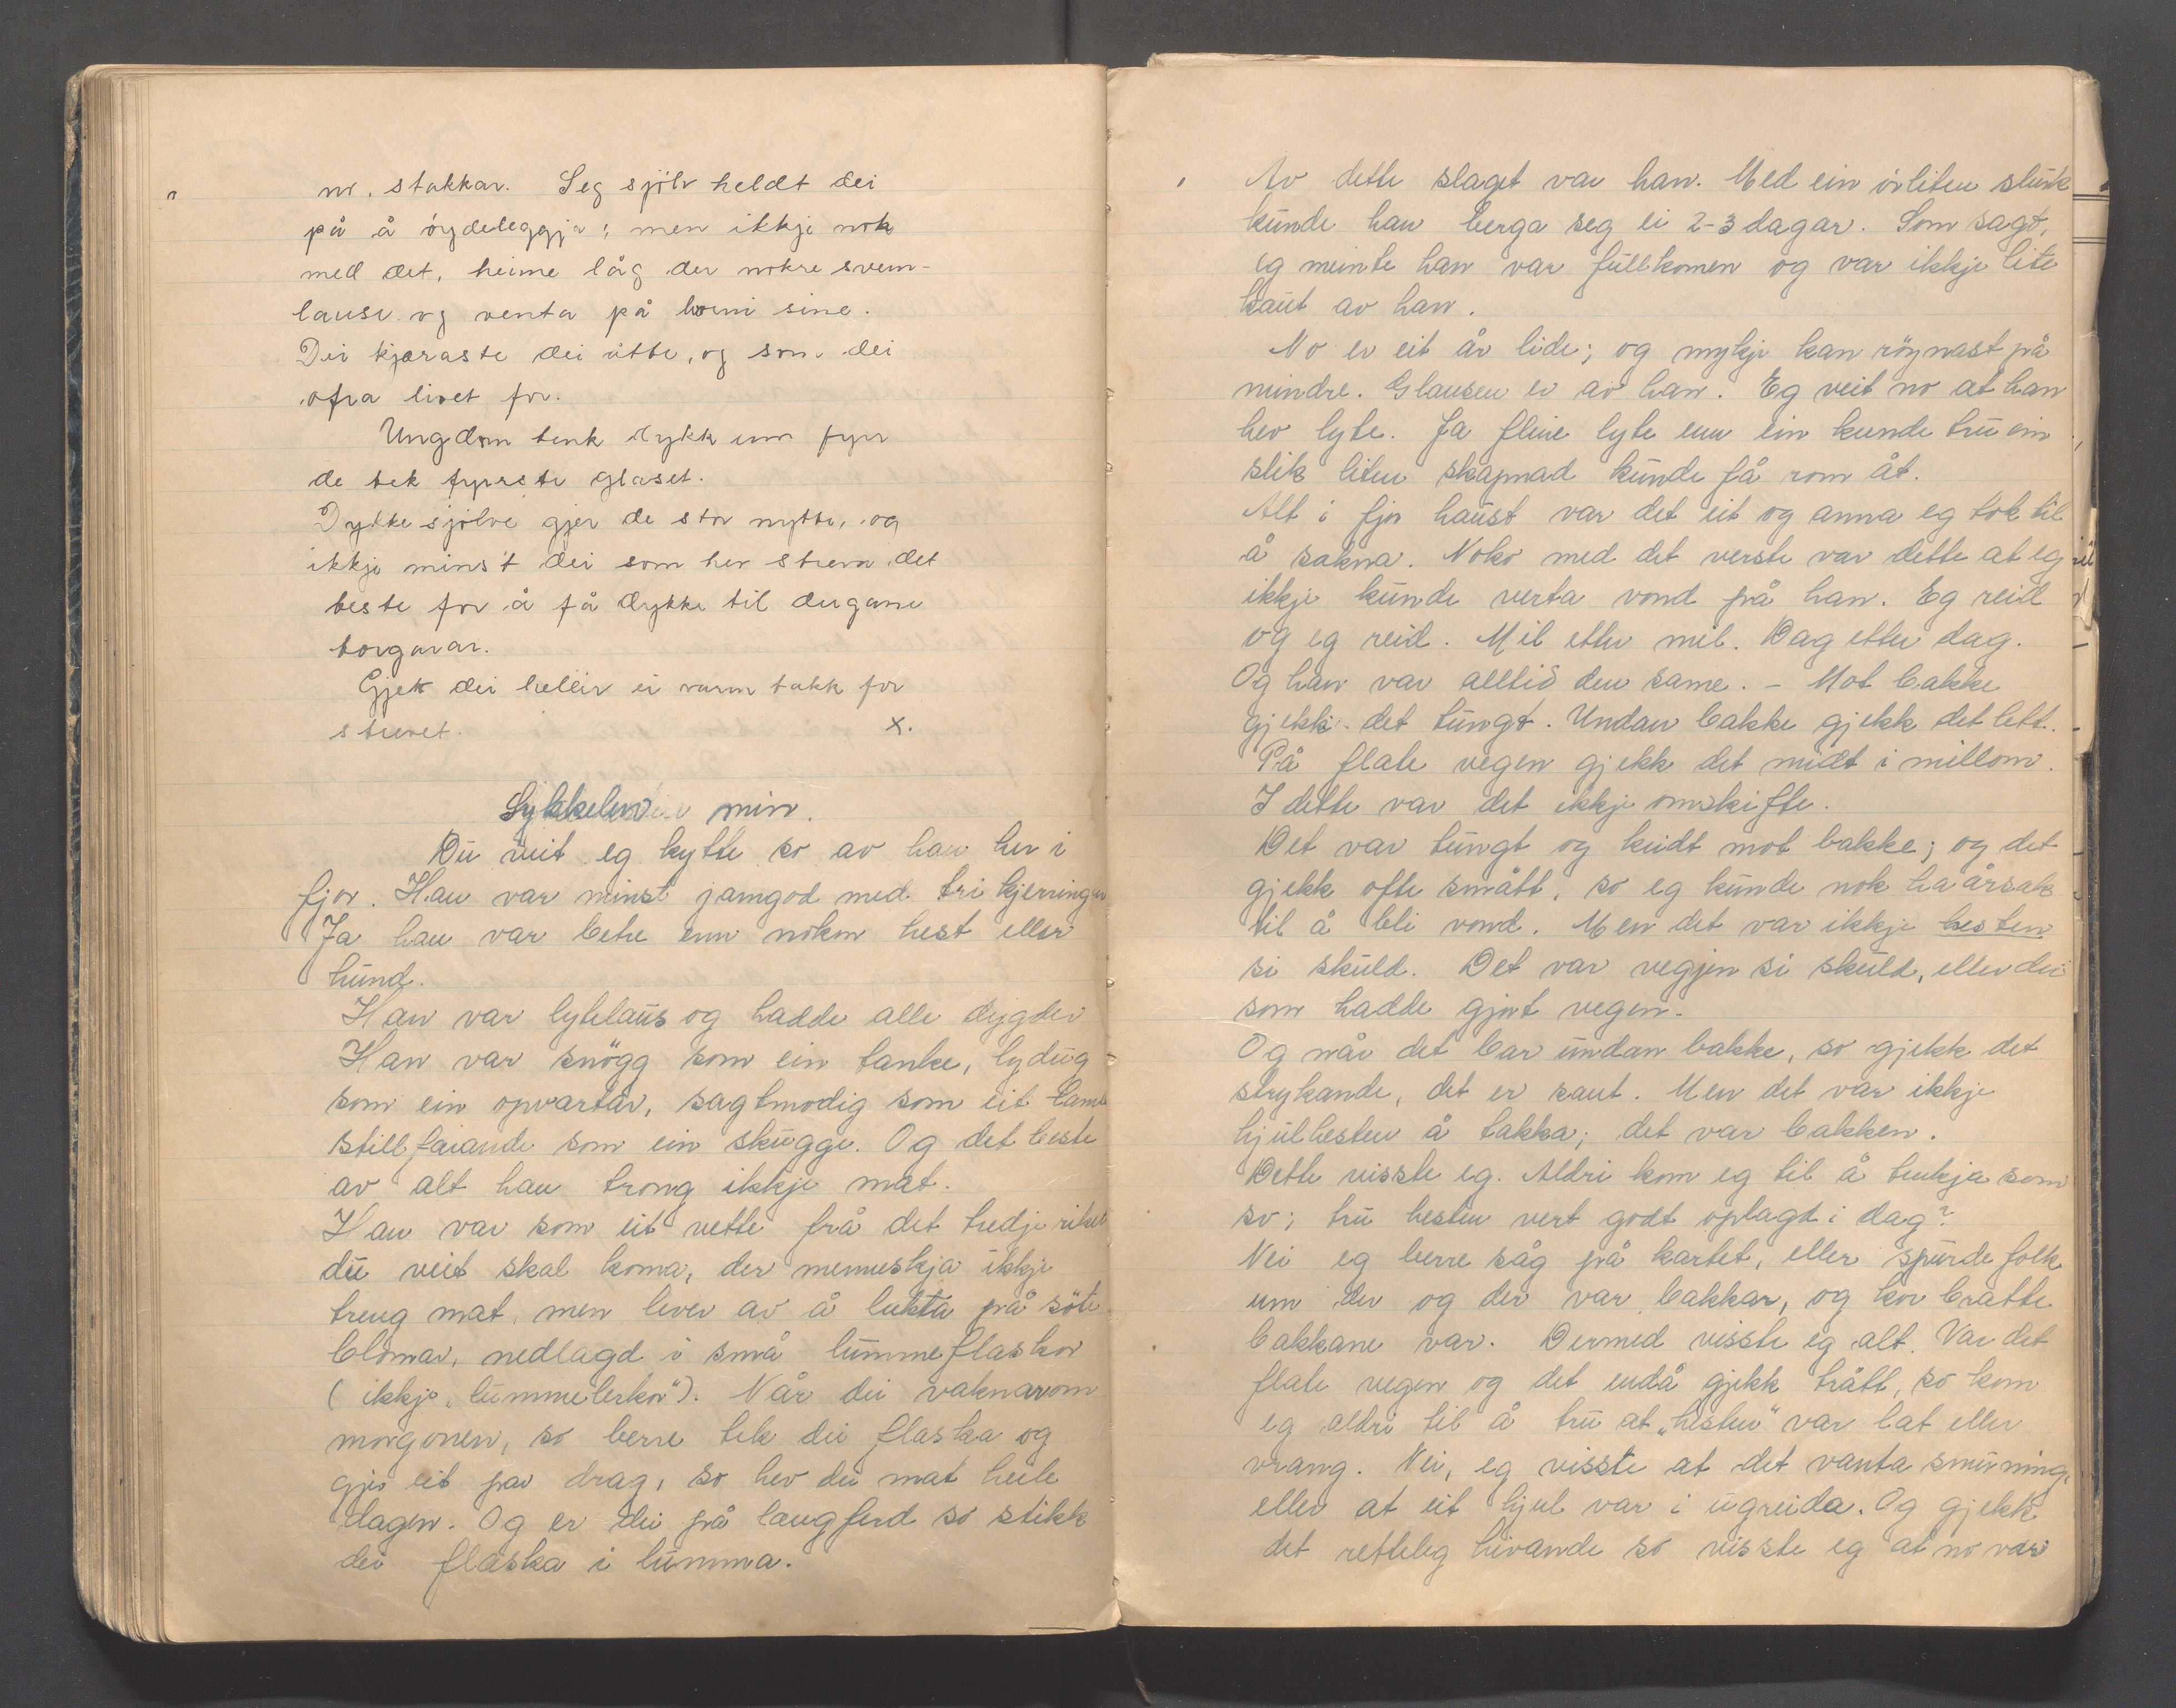 nr. stakkar. Seg sjölv heldt dei
på å öydeleggja; men ikkje nok
med det, heime låg der nokre svevn-
lause og venta på borni sine.
Dei kjæraste dei åtte, og som dei
ofra livet for.
Ungdom tenk dykk um fyrr
de tek fyrste glaset.
Dykke sjölve gjer de stor nytte, og
ikkje minst dei som hev streva det
beste for å få dykke til dugane
borgarar.
Gjev dei heller ei varm takk for
strevet. x.
Sykkelen min.
Du veit eg kytte so av han her i
fjor. Han var minst jamgod med tri kjerringar
Ja han var betre enn nokon hest eller
hund.
Han var lytelaus og hadde alle dygder
Han var snögg som ein tanke, lydug
som ein opvartar, sagtmodig som eit lamb
stillfarande som ein skugge. Og det beste
av alt han trong ikkje mat.
Han var som eit vette frå det tredje riket
du veit skal koma, der menneskja ikkje
treng mat, men lever av å lukta på söte
blomar, nedlagd i små lummeflaskor
(ikkje „lummelerkor"). Når dei vaknar om
morgonen, so berre tek dei flaska og
gjer eit par drag, so hev dei mat heile
dagen. Og er dei på langferd so stikk
dei flaska i lumma.
Av dette slaget var han. Med ein örliten slurk
kunde han berga seg ei 2-3 dagar. Som sagt,
eg meinte han var fullkomen og var ikkje lite
kaut av han.
No er eit år lide; og mykje kan röynast på
mindre. Glansen er av han. Eg veit no at han
hev lyte. Ja fleire lyte enn ein kunde tru ein
slik liten skapnad kunde få rom åt.
Alt i fjor haust var det eit og anna eg tok til
å sakna. Noko med det verste var dette at eg
ikkje kunde verta vond på han. Eg reid
og eg reid. Mil etter mil. Dag etter dag.
Og han var alltid den same. - Mot bakke
gjekk det tungt. Undan bakke gjekk det lett.
På flate vegen gjekk det midt i millom.
I dette var det ikkje omskifte.
Det var tungt og leidt mot bakke; og det
gjekk ofte smått, so eg kunde nok ha årsak
til å bli vond. Men det var ikkje hesten
si skuld. Det var vegjen si skuld, eller dei
som hadde gjort vegen.
Og når det bar undan bakke, so gjekk det
strykande, det er sant. Men det var ikkje
hjulhesten å takka; det var bakken.
Dette visste eg. Aldri kom eg til å tenkja som
so; tru hesten vert godt oplagd i dag?
Nei eg berre såg på kartet, eller spurde folk
um der og der var bakkar, og kor bratte
bakkane var. Dermed visste eg alt. Var det
flate vegen og det endå gjekk trått, so kom
eg aldri til å tru at „hesten" var lat eller
vrang. Nei, eg visste at det vanta smurning,
eller at eit hjul var i ugreida. Og gjekk
det retteleg hivande so visste eg at no var